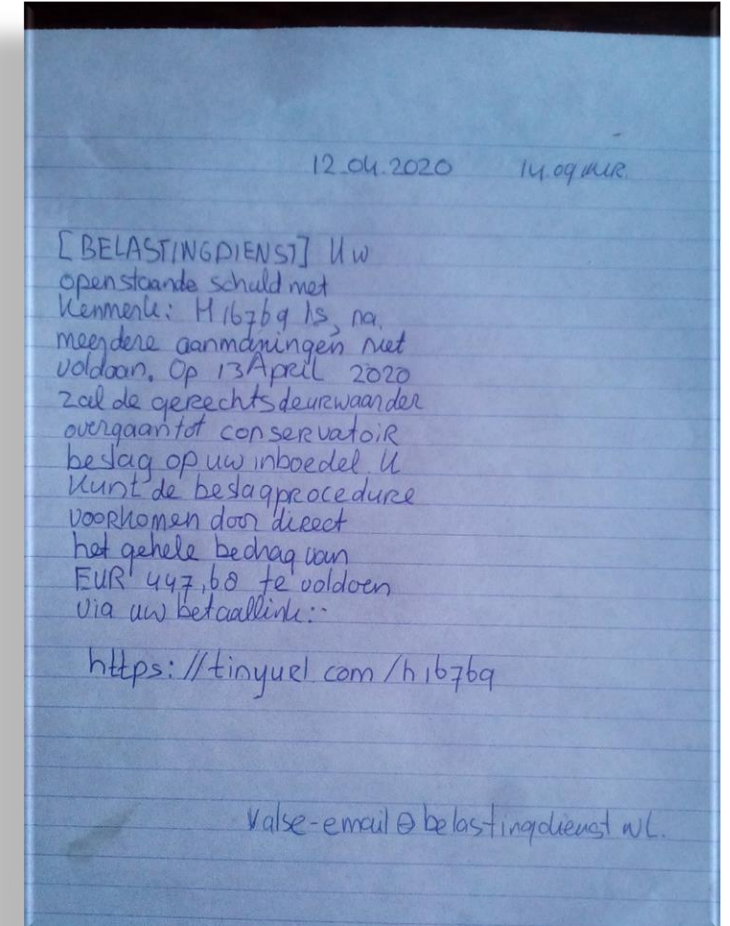 12.04.2020 14.09 uur.
[BELASTINGDIENST] Uw
openstaande schuld met
Kenmerk: H16769 is, na
meerdere aanmaningen niet
voldaan. Op 13 April 2020
zal de gerechtsdeurwaarder
overgaan tot conservatoir
beslag op uw inboedel U
kunt de beslagprocedure
voorkomen door direct
het gehele bedrag van
EUR 447,68 te voldoen
via uw betaallink:
https://tinyurl.com/h16769
valse-email@belastingdienst NL.